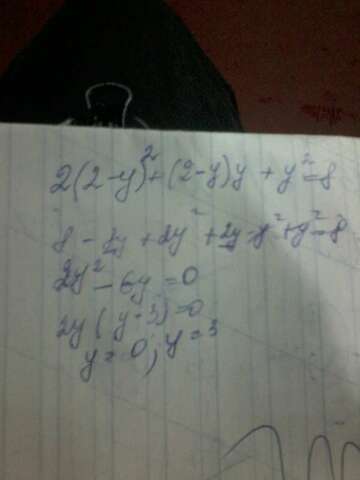 2(2-y)²+(2-y)y+y²=8
8-8y+2y²+2y-y²+y²=8
2y²-6y=0
2y(y-3)=0
y=0; y=3